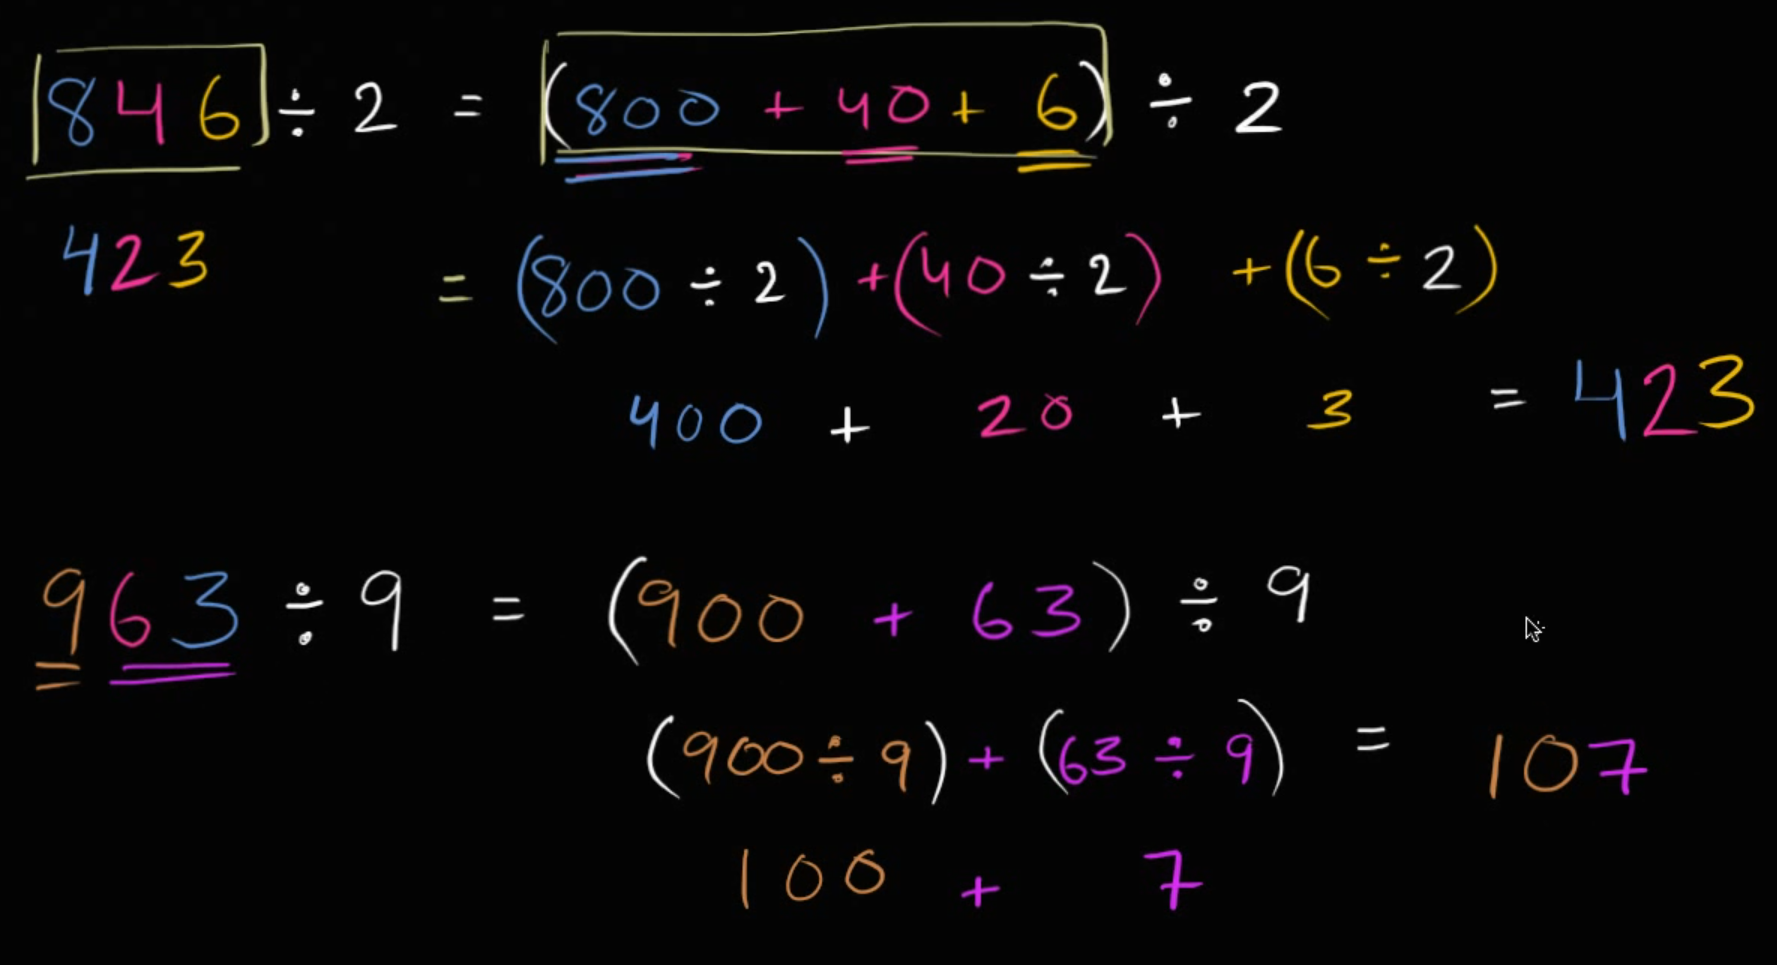 846 ÷ 2 = (800 + 40 + 6) ÷ 2
423 = (800 ÷ 2) + (40 ÷ 2) + (6 ÷ 2)
400 + 20 + 3 = 423
963 ÷ 9 = (900 + 63) ÷ 9
(900 ÷ 9) + (63 ÷ 9) = 107
100 + 7